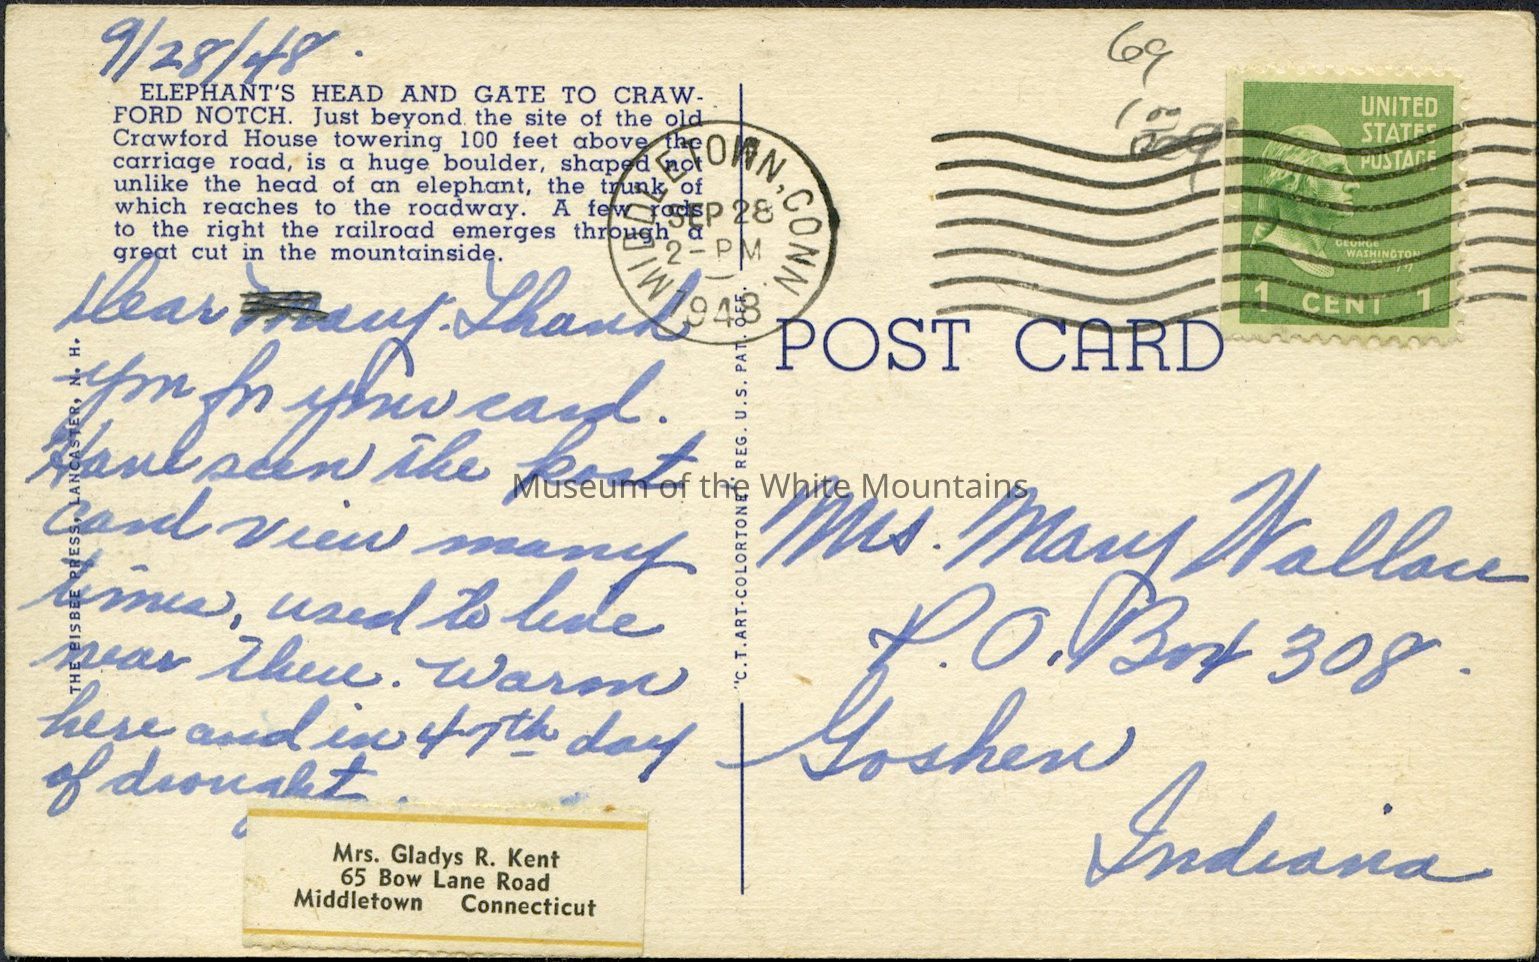 9/28/48.
ELEPHANT'S HEAD AND GATE TO CRAW-
FORD NOTCH. Just beyond the site of the old
Crawford House towering 100 feet above the
carriage road, is a huge boulder, shaped not
unlike the head of an elephant, the trunk of
which reaches to the roadway. A few rods
to the right the railroad emerges through a
great cut in the mountainside.
Dear Mary. Thank
you for your card.
Have seen the post
card view many
times, used to live
near there. Warm
here and in 47th day
of drought.
Mrs. Gladys R. Kent
65 Bow Lane Road
Middletown Connecticut
THE BISBEE PRESS, LANCASTER, N. H.
"C.T. ART-COLORTONE" REG. U.S. PAT. OFF.
MIDDLETOWN, CONN.
SEP 28
2-PM
1948
69
1 00
UNITED
STATES
POSTAGE
GEORGE
WASHINGTON
1 CENT 1
POST CARD
Museum of the White Mountains
Mrs. Mary Wallace
P.O. Box 308.
Goshen
Indiana